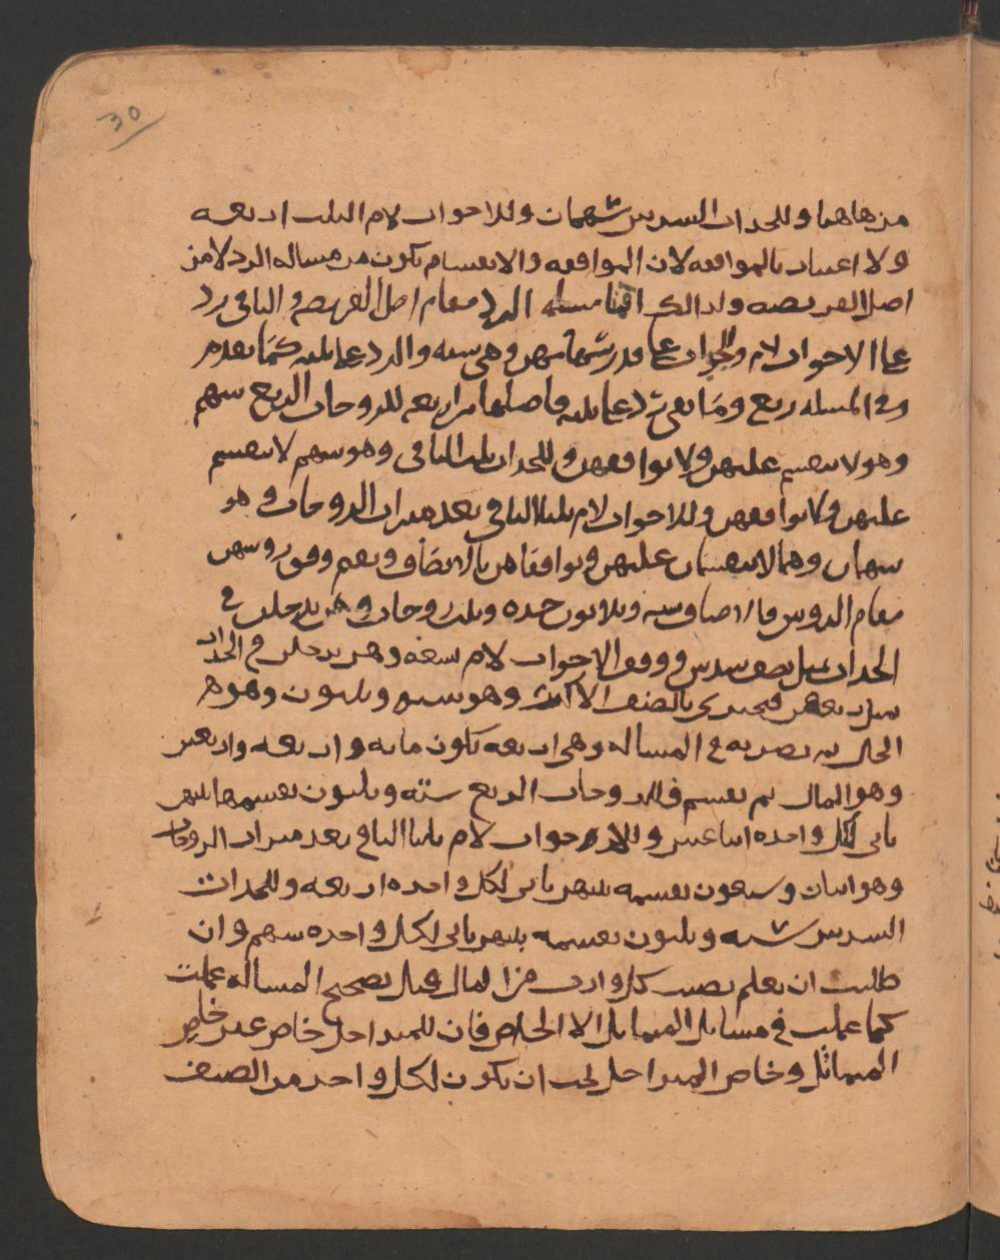 30
من هاهنا وللجدات السدس سهمان وللاخوات لام الثلث اربعه
ولا اعتبار بالموافقه لان الموافقه والانقسام يكون من مساله الرد لا من
اصل الفريضه ولذالك اقمنا مسله الرد مقام اصل الفريضه والباقي يرد
على الاخوات لام والجدات على قدر سهامهن وهي سته والرد على ثلثه كما تقدم
وفي المسله ربع وما بقي يرد على ثلثه فاصلها من اربعه للزوجات الربع سهم
وهو لا ينقسم عليهن ولا يوافقهن وللجدات ثلث الباقي وهو سهم لا ينقسم
عليهن ولا يوافقهن وللاخوات لام ثلثا الباقي بعد ميراث الزوجات وهو
سهمان وهما لا ينقسمان عليهن ويوافقاهن بالانصاف ويقيم وفق روسهن
مقام الروس فالانصاف سته وثلاثون جده وثلث زوجات وهن يدخلن في
الجدات بمثل نصف سدس ووفق الاخوات لام تسعه وهن يدخلن في الجدات
بمثل ربعهن فيجتزى بالصنف الاكثر وهو سته وثلثون وهو
الحال ثم نضربه في المساله وهي اربعه تكون مايه واربعه واربعين
وهو المال ثم يقسم فللزوجات الربع سته وثلثون نقسمها بينهن
ياتي لكل واحده اثنا عشر وللاخوات لام ثلثا الباقي بعد ميراث الزوجات
وهو اثنان وسبعون نقسمه بينهن ياتي لكل واحده اربعه وللجدات
السدس سته وثلثون نقسمه بينهن ياتي لكل واحده سهم وان
طلبت ان تعلم نصيب كل وارث من المال قبل تصحيح المساله عملت
كما عملت في مسايل المتماثل الا الخاص فان للمتداخل خاص غير خاص
المتماثل وخاص المتداخل يجب ان يكون لكل واحد من الصنف